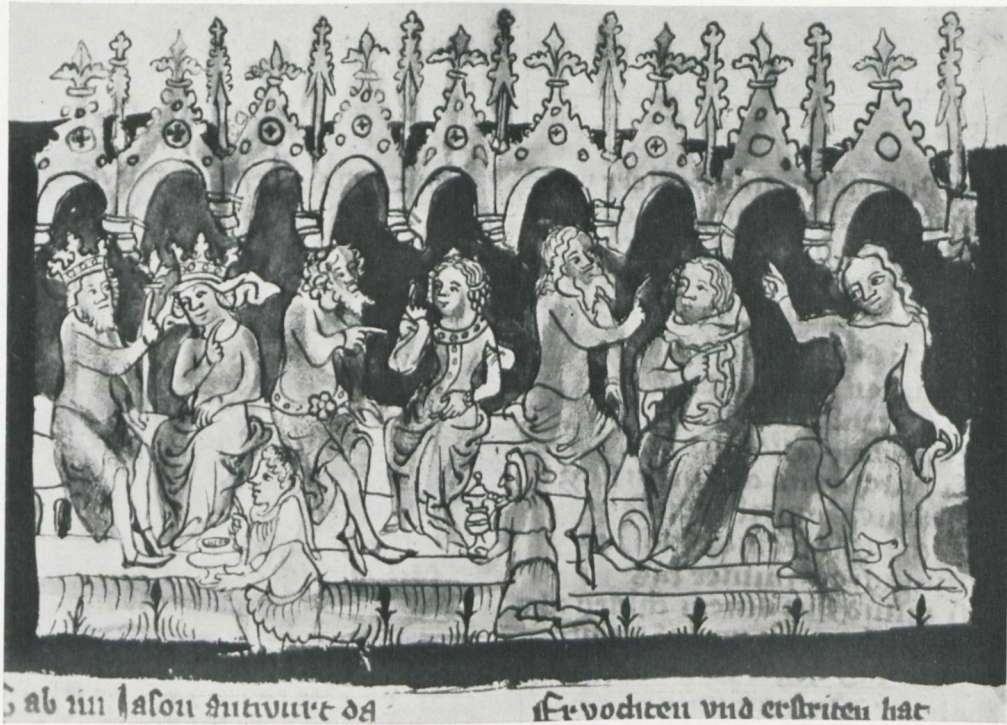 ab im Jason Antwurt da
Er vochten vnd erstriten hat